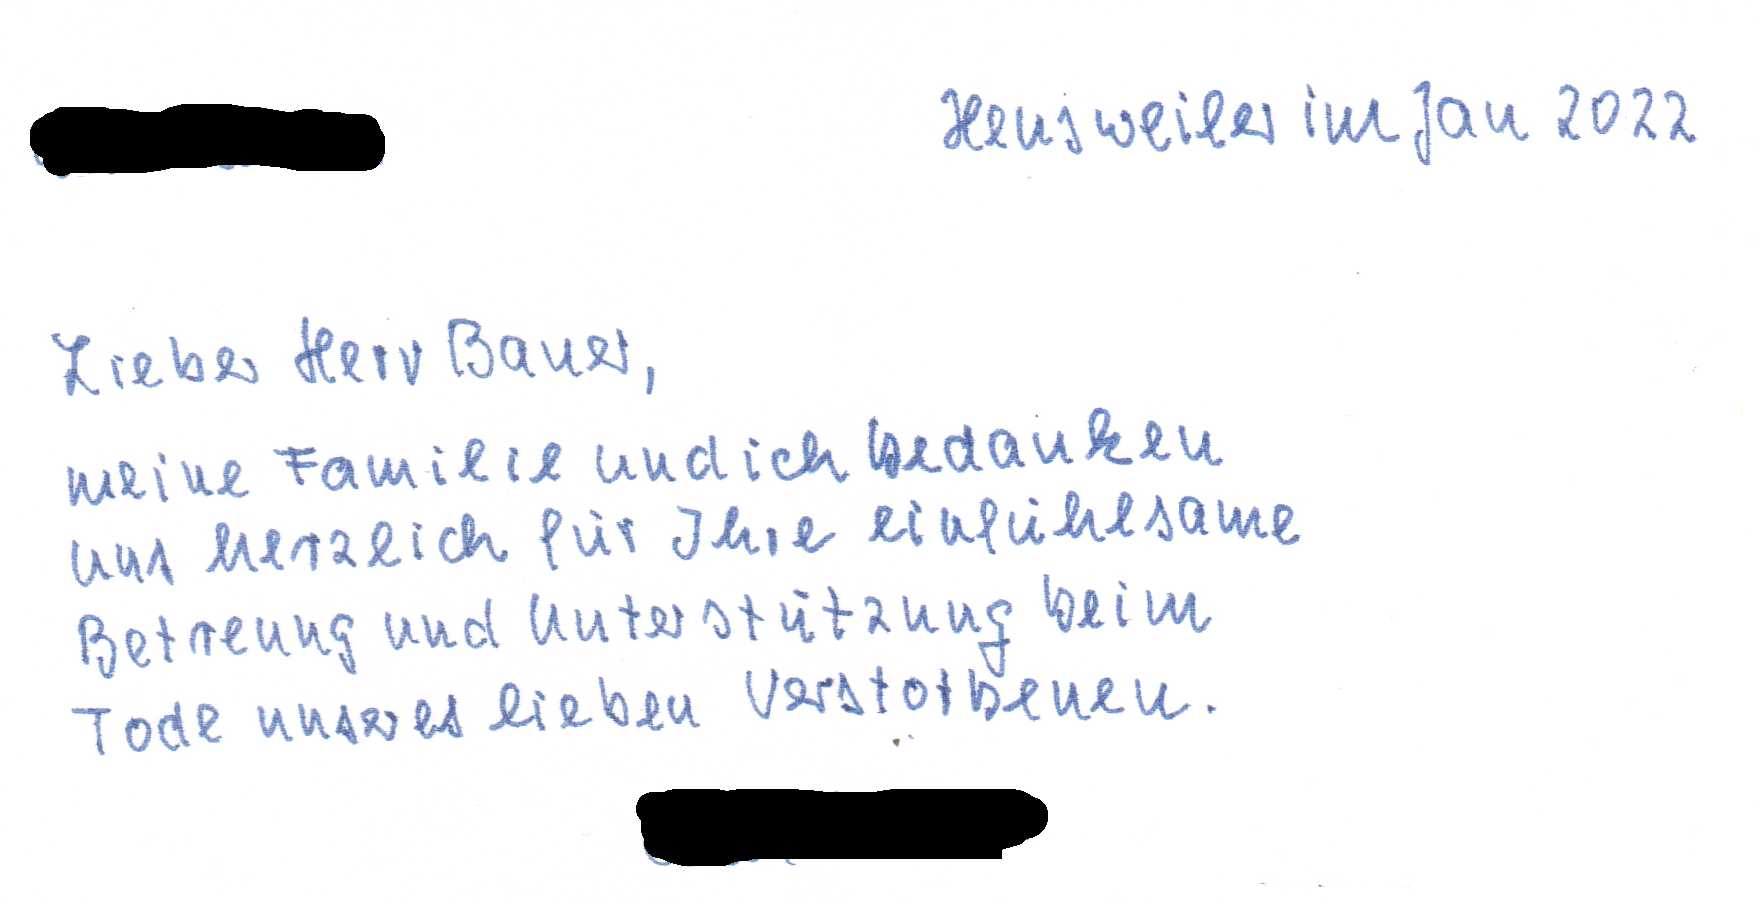 Heusweiler im Jan 2022
Lieber Herr Bauer,
meine Familie und ich bedanken
uns herzlich für Ihre einfühlsame
Betreuung und Unterstützung beim
Tode unseres lieben Verstorbenen.